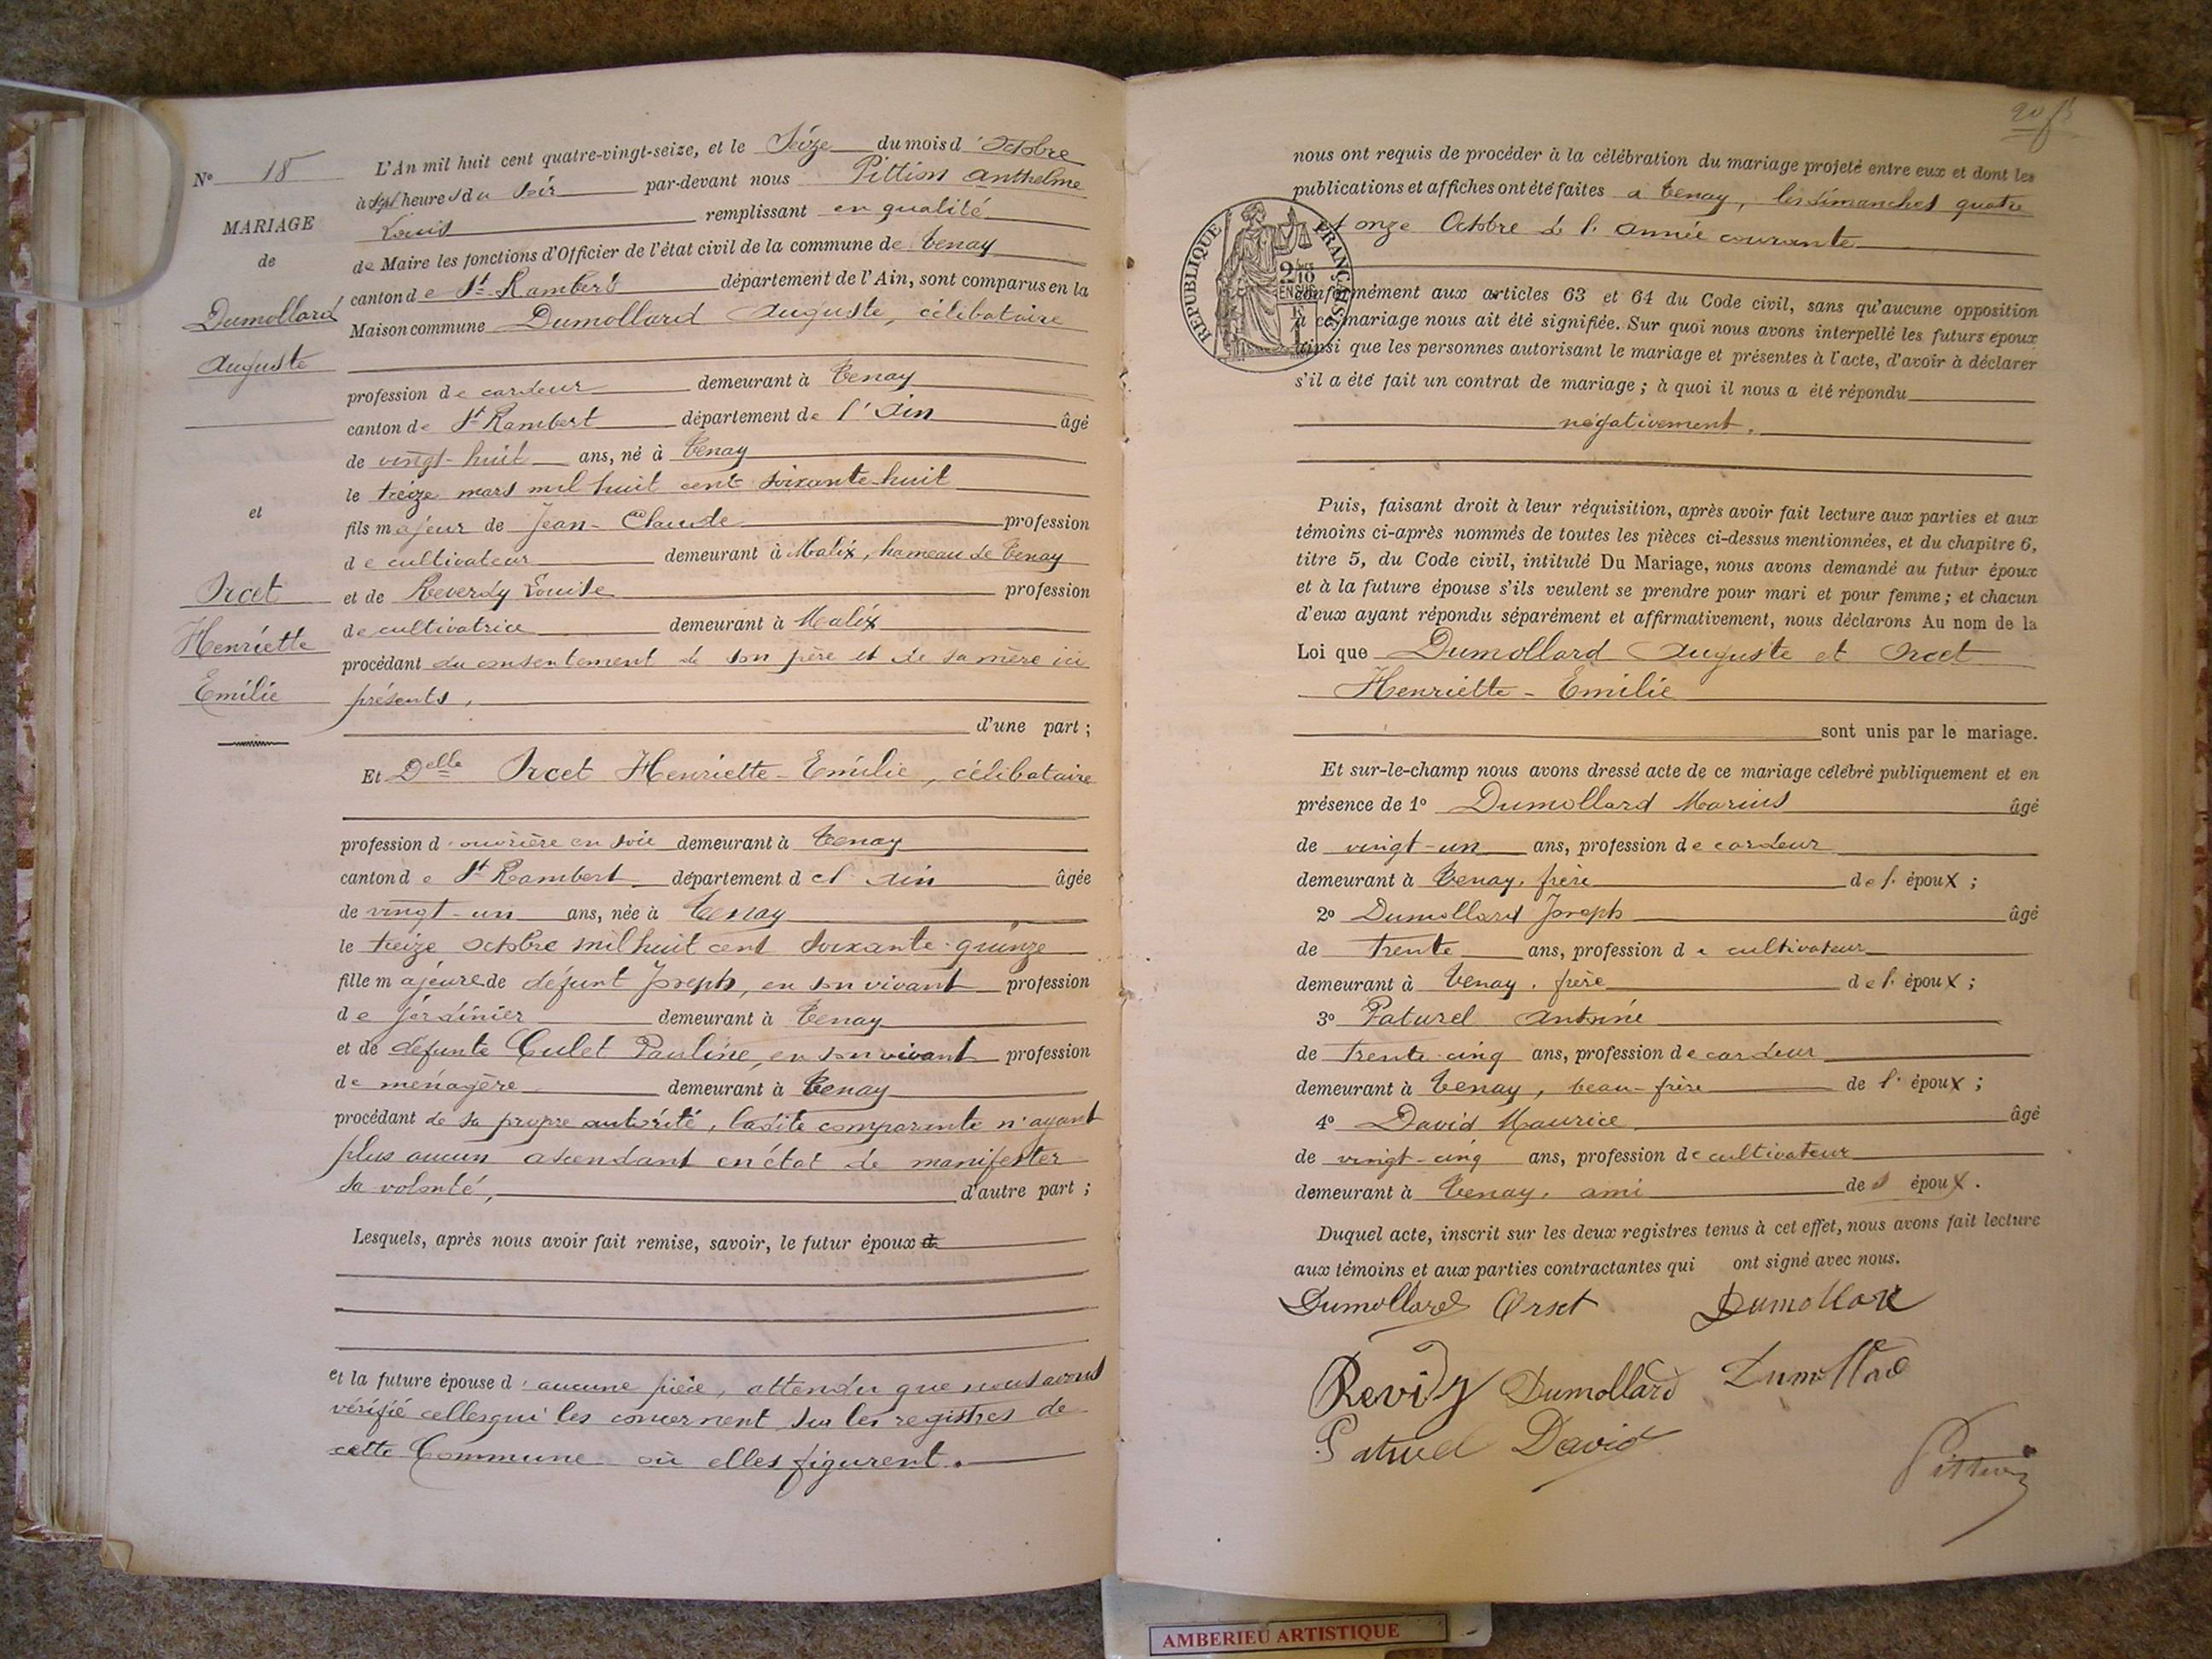 Nº 18
MARIAGE
de
Dumollard
Auguste
et
Orcet
Henriette
Emilie
L'An mil huit cent quatre-vingt-seize, et le Seize du mois d'Octobre
à sept heures du soir par-devant nous Pittion Anthelme
Louis remplissant en qualité
de Maire les fonctions d'Officier de l'état civil de la commune de Tenay
canton de St Rambert département de l'Ain, sont comparus en la
Maison commune Dumollard Auguste, célibataire
profession de cardeur demeurant à Tenay
canton de St Rambert département de l'Ain âgé
de vingt-huit ans, né à Tenay
le treize mars mil huit cent soixante-huit
fils majeur de Jean-Claude profession
de cultivateur demeurant à Malix, hameau de Tenay
et de Reverdy Louise profession
de cultivatrice demeurant à Malix
procédant du consentement de son père et de sa mère ici
présents,
d'une part ;
Et Delle Orcet Henriette-Emilie, célibataire
profession d'ouvrière en soie demeurant à Tenay
canton de St Rambert département de l'Ain âgée
de vingt-un ans, née à Tenay
le treize octobre mil huit cent soixante-quinze
fille majeure de défunt Joseph, en son vivant profession
de jardinier demeurant à Tenay
et de défunte Culet Pauline, en son vivant profession
de ménagère demeurant à Tenay
procédant de sa propre autorité, ladite comparante n'ayant
plus aucun ascendant en état de manifester
sa volonté, d'autre part ;
Lesquels, après nous avoir fait remise, savoir, le futur époux d
et la future épouse d'aucune pièce, attendu que nous avons
vérifié celles qui les concernent sur les registres de
cette Commune où elles figurent.
nous ont requis de procéder à la célébration du mariage projeté entre eux et dont les
publications et affiches ont été faites à Tenay, les dimanches quatre
et onze Octobre de l'année courante
RÉPUBLIQUE FRANÇAISE
conformément aux articles 63 et 64 du Code civil, sans qu'aucune opposition
à ce mariage nous ait été signifiée. Sur quoi nous avons interpellé les futurs époux
ainsi que les personnes autorisant le mariage et présentes à l'acte, d'avoir à déclarer
s'il a été fait un contrat de mariage ; à quoi il nous a été répondu
négativement.
Puis, faisant droit à leur réquisition, après avoir fait lecture aux parties et aux
témoins ci-après nommés de toutes les pièces ci-dessus mentionnées, et du chapitre 6,
titre 5, du Code civil, intitulé Du Mariage, nous avons demandé au futur époux
et à la future épouse s'ils veulent se prendre pour mari et pour femme ; et chacun
d'eux ayant répondu séparément et affirmativement, nous déclarons Au nom de la
Loi que Dumollard Auguste et Orcet
Henriette-Emilie
sont unis par le mariage.
Et sur-le-champ nous avons dressé acte de ce mariage célébré publiquement et en
présence de 1º Dumollard Marius âgé
de vingt-un ans, profession de cardeur
demeurant à Tenay, frère de l'époux ;
2º Dumollard Joseph âgé
de trente ans, profession de cultivateur
demeurant à Tenay, frère de l'époux ;
3º Paturel Antoine
de trente-cinq ans, profession de cardeur
demeurant à Tenay, beau-frère de l'époux ;
4º David Maurice âgé
de vingt-cinq ans, profession de cultivateur
demeurant à Tenay, ami des époux.
Duquel acte, inscrit sur les deux registres tenus à cet effet, nous avons fait lecture
aux témoins et aux parties contractantes qui ont signé avec nous.
Dumollard Orset Dumollard
Dumollard Dumollard
David
Pittion
AMBERIEU ARTISTIQUE